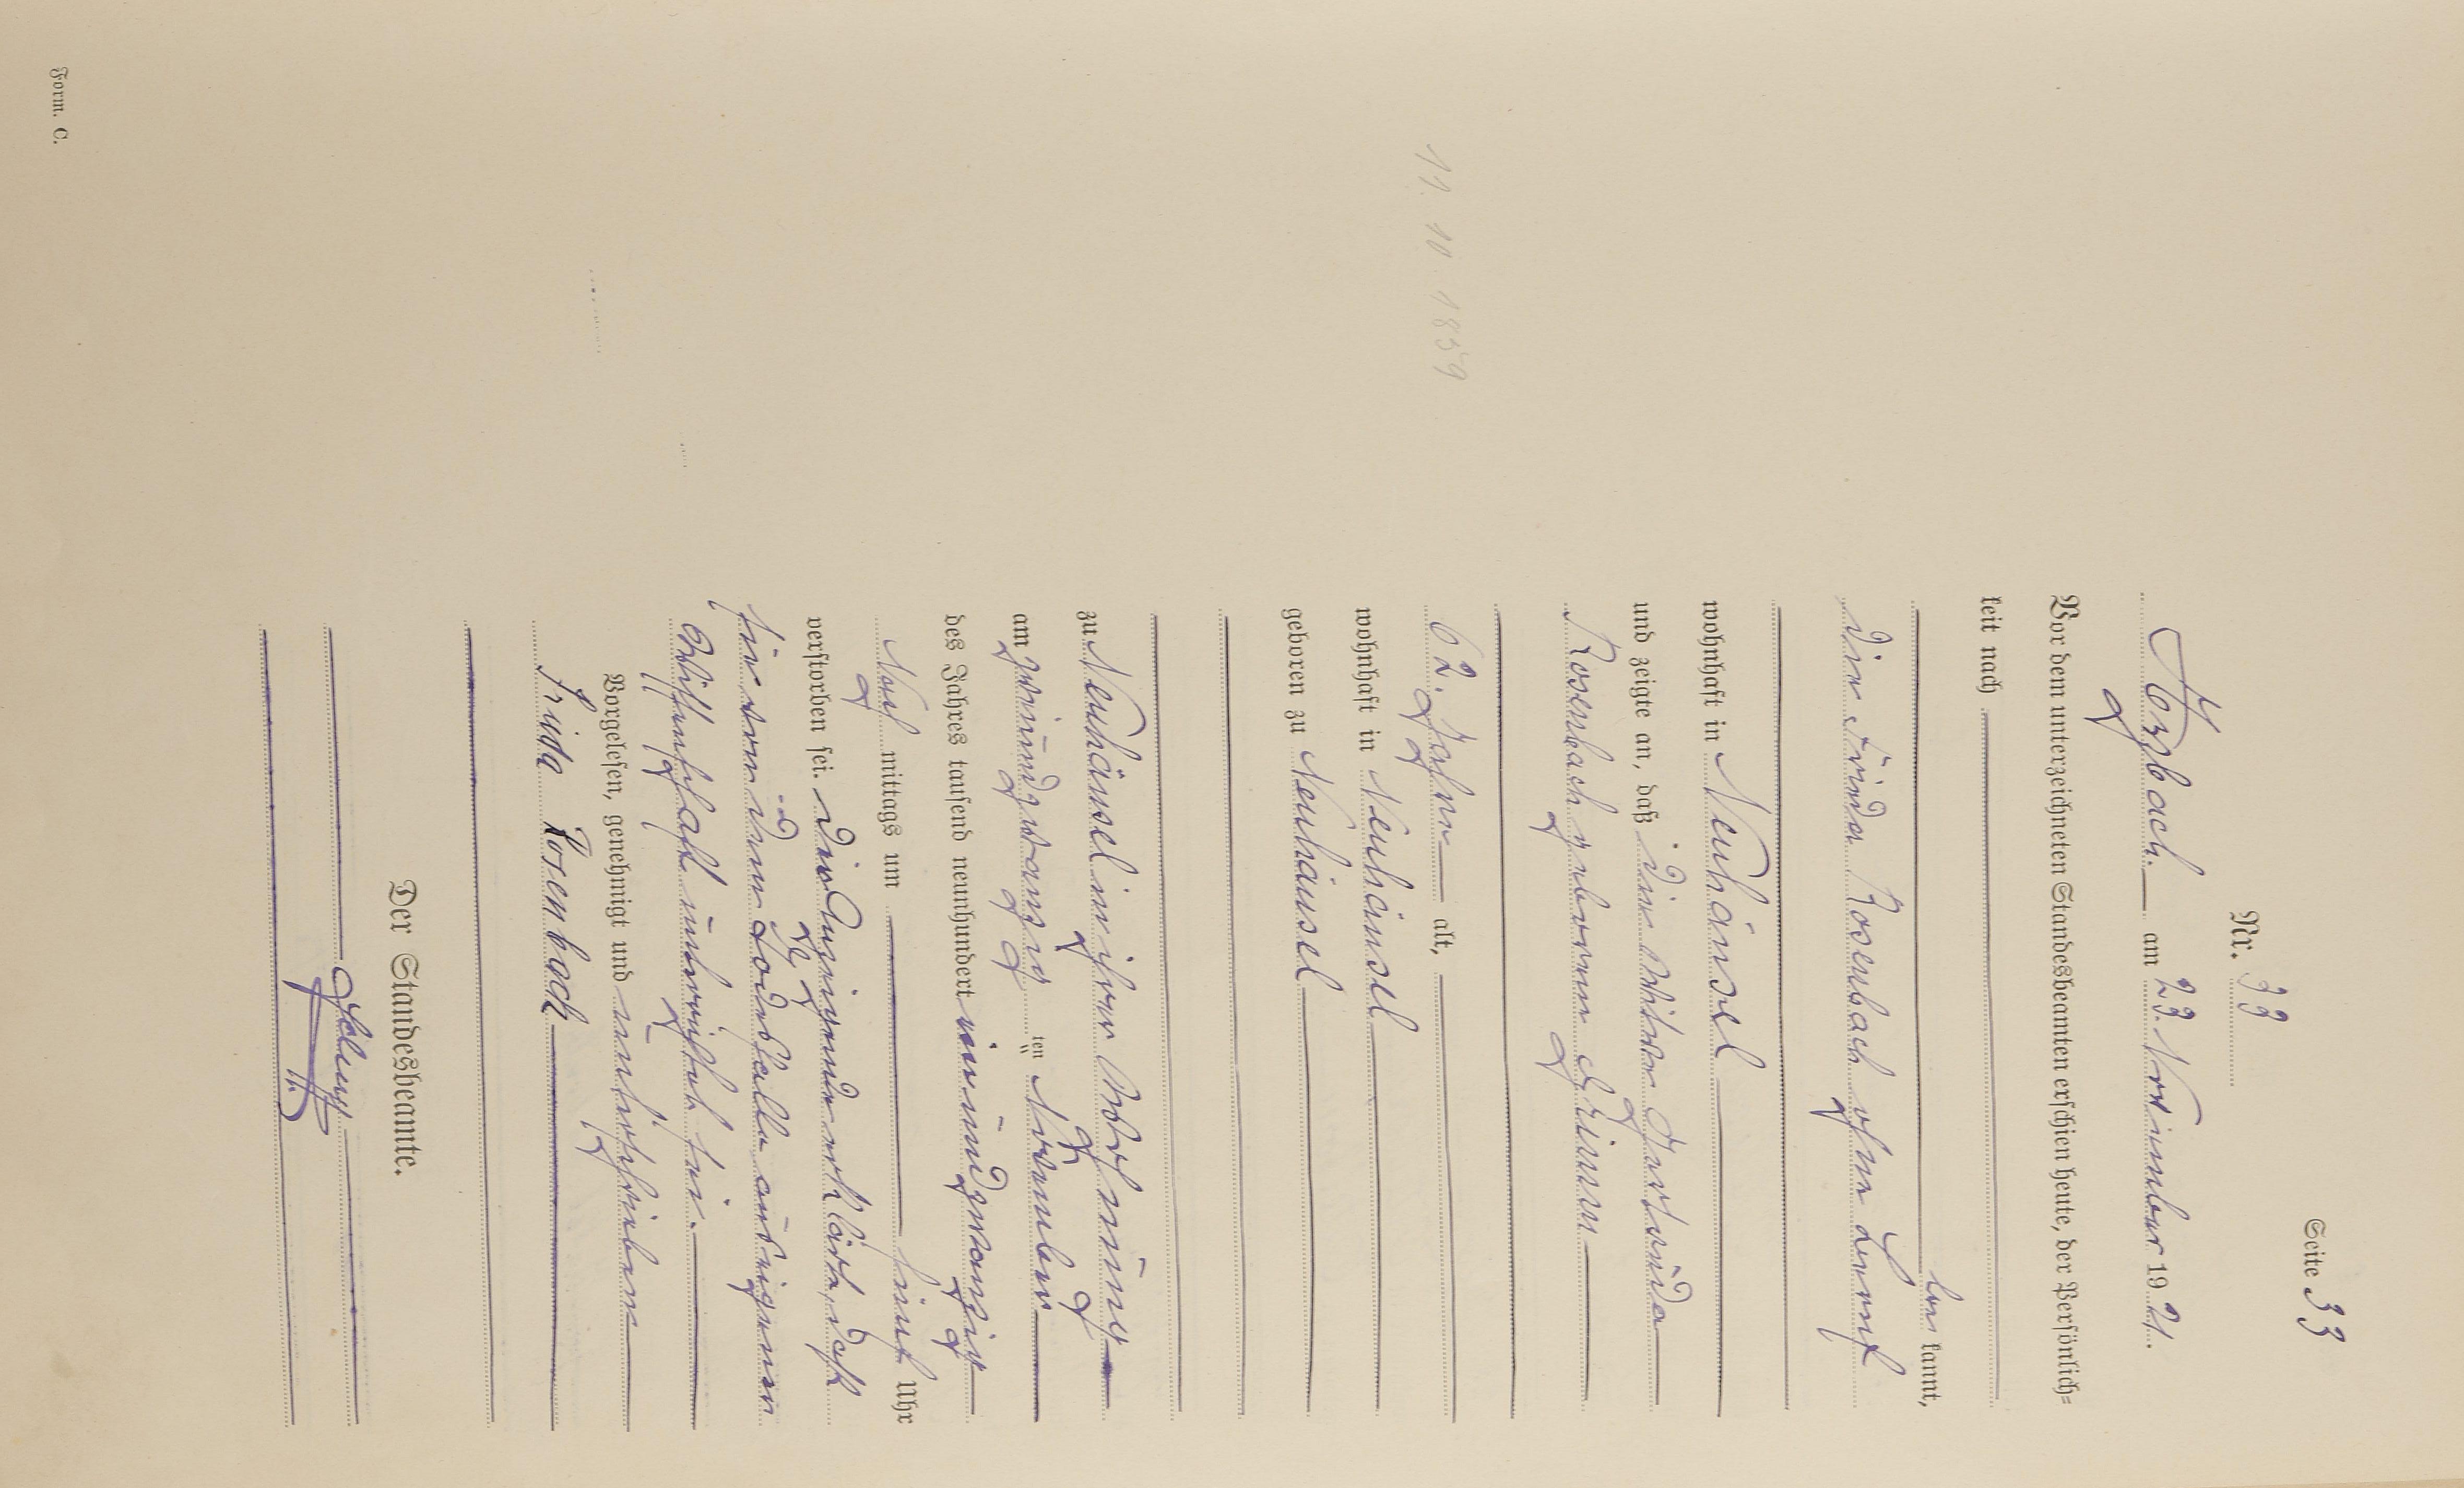 Seite 33
Nr. 33
Arzbach am 23. November 1921.
Vor dem unterzeichneten Standesbeamten erschien heute, der Persönlich-
keit nach
be kannt,
die Frida Rosenbach ohne Beruf
wohnhaft in Neuhäusel
und zeigte an, daß die Witwe Gertruda
Rosenbach geborene
62. Jahre alt,
11. 10. 1859
wohnhaft in Neuhäusel
geboren zu Neuhäusel
zu Neuhäusel in ihrer Wohnung
am zweiundzwanzig ten November
des Jahres tausend neunhundert einundzwanzig
Nach mittags um fünf Uhr
verstorben sei. Die Anzeigende erklärte, daß
sie von dem Todesfalle aus eigener
Wissenschaft unterrichtet sei.
Vorgelesen, genehmigt und unterschrieben
Frida Rosenbach
Der Standesbeamte.
Form. C.